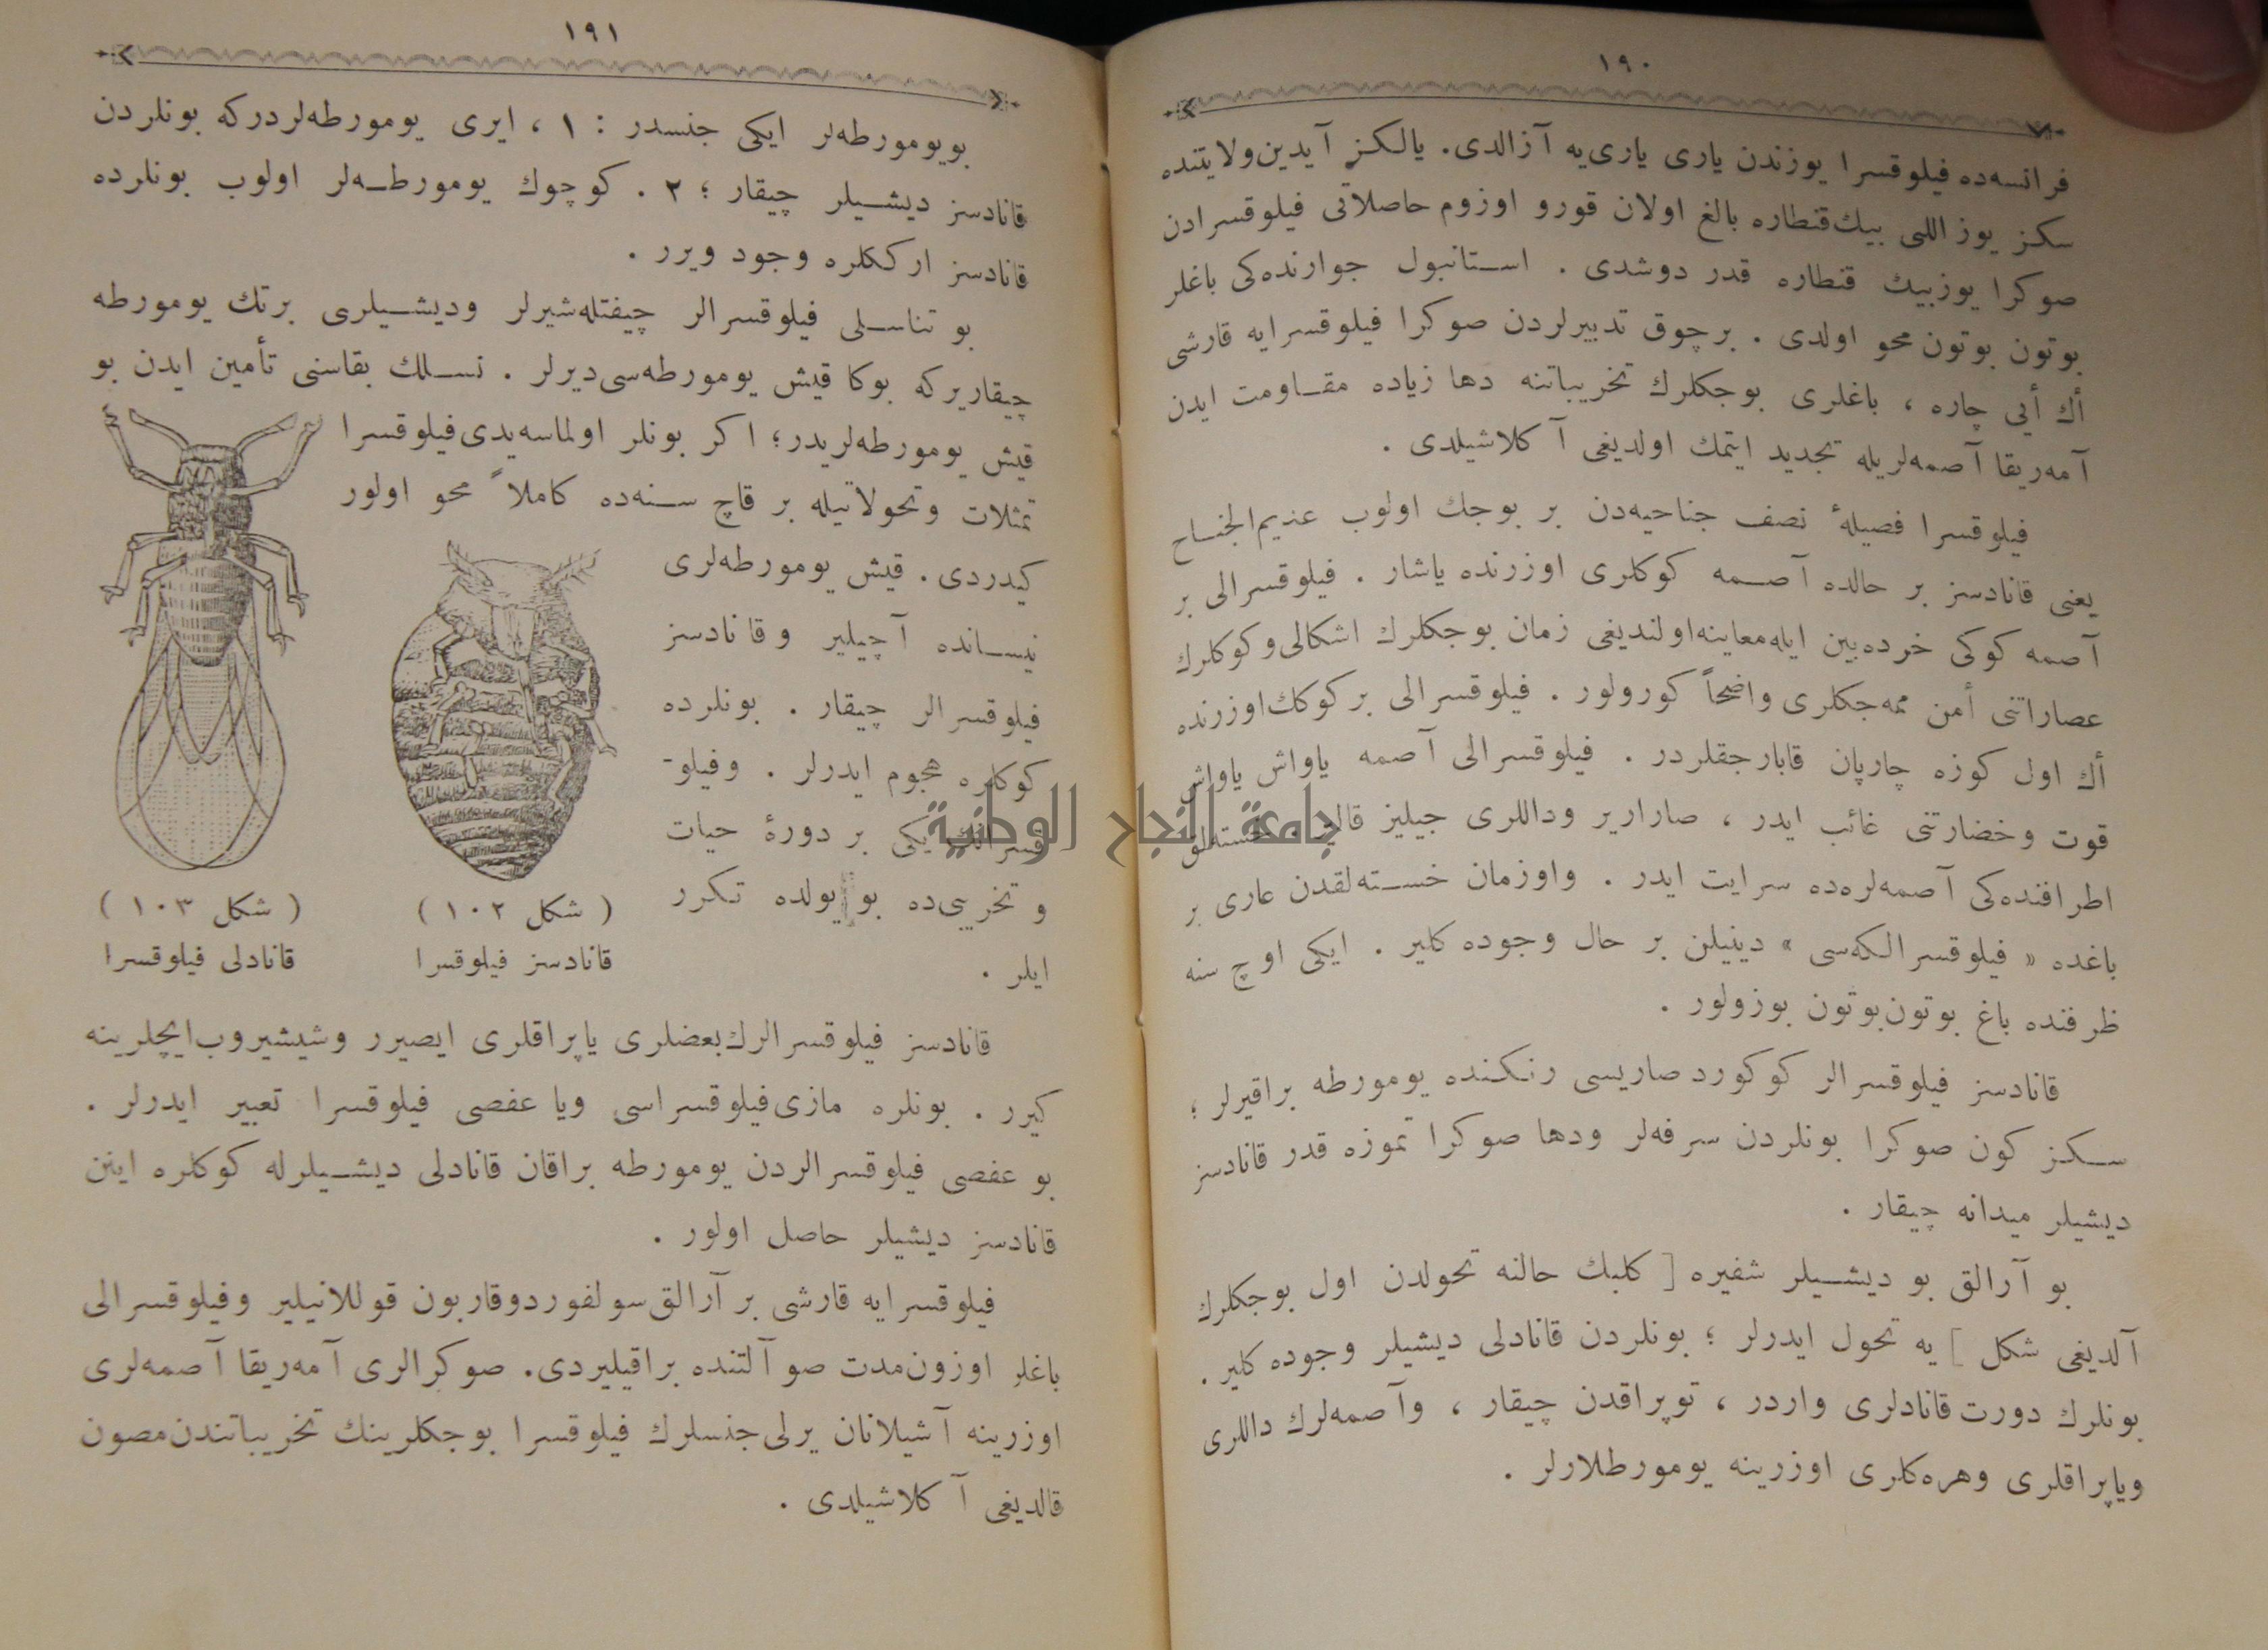 ١٩٠
فرانسه‌ده فیلوقسرا یوزندن یاری یاری‌یه آزالدی. یالکز آیدین‌ولایتنده
سکز یوز اللی بیك‌قنطاره بالغ اولان قورو اوزوم حاصلاتی فیلوقسرادن
صوکرا یوزبیك قنطاره قدر دوشدی . استانبول جوارنده‌کی باغلر
بوتون بوتون محو اولدی . برچوق تدبیرلردن صوکرا فیلوقسرایه قارشی
أك أیی چاره ، باغلری بوجکلرك تخریباتنه دها زیاده مقاومت ایدن
آمه‌ریقا آصمه‌لریله تجدید ایتمك اولدیغی آکلاشیلدی .
فیلوقسرا فصیلهٔ نصف جناحیه‌دن بر بوجك اولوب عدیم‌الجناح
یعنی قانادسز بر حالده آصمه کوکلری اوزرنده یاشار . فیلوقسرالی بر
آصمه کوکی خرده‌بین ایله‌معاینه‌اولندیغی زمان بوجکلرك اشکالی‌وکوکلرك
عصاراتنی أمن ممه‌جکلری واضحاً کورولور . فیلوقسرالی برکوکك‌اوزرنده
أك اول کوزه چارپان قابارجقلردر . فیلوقسرالی آصمه یاواش یاواش
قوت وخضارتنی غائب ایدر ، صارارير وداللری جیلیز قالیر . خسته‌لق
اطرافنده‌کی آصمه‌لره‌ده سرایت ایدر . واوزمان خسته‌لقدن عاری بر
باغده « فیلوقسرالکه‌سی » دینیلن بر حال وجوده کلیر . ایکی اوچ سنه
ظرفنده باغ بوتون‌بوتون بوزولور .
قانادسز فیلوقسرالر کوکورد صاریسی رنکنده یومورطه براقیرلر ؛
سکز کون صوکرا بونلردن سرفه‌لر ودها صوکرا تموزه قدر قانادسز
دیشیلر میدانه چیقار .
بو آرالق بو دیشیلر شفیره [ کلبك حالنه تحولدن اول بوجکلرك
آلدیغی شکل ] یه تحول ایدرلر ؛ بونلردن قانادلی دیشیلر وجوده کلیر .
بونلرك دورت قانادلری واردر ، توپراقدن چیقار ، وآصمه‌لرك داللری
ویاپراقلری وهره‌کلری اوزرینه یومورطلارلر .
١٩١
بویومورطه‌لر ایکی جنسدر : ١ ، ایری یومورطه‌لردرکه بونلردن
قانادسز دیشیلر چیقار ؛ ٢ . کوچوك یومورطه‌لر اولوب بونلرده
قانادسز ارککلره وجود ویرر .
بو تناسلی فیلوقسرالر چیفتله‌شیرلر ودیشیلری برتك یومورطه
چیقاریرکه بوکا قیش یومورطه‌سی‌دیرلر . نسلك بقاسنی تأمین ایدن بو
قیش یومورطه‌لریدر؛ اکر بونلر اولماسه‌یدی‌فیلوقسرا
تمثلات وتحولاتیله بر قاچ سنه‌ده کاملاً محو اولور
کیدردی . قیش یومورطه‌لری
نیسانده آچیلیر وقانادسز
فیلوقسرالر چیقار . بونلرده
کوکلره هجوم ایدرلر . وفیلو-
قسرانك ایکی بر دورهٔ حیات
و تخریبی‌ده بو یولده تکرر
ایلر .
( شکل ١٠٢ )
قانادسز فیلوقسرا
( شکل ١٠٣ )
قانادلی فیلوقسرا
قانادسز فیلوقسرالرك‌بعضلری یاپراقلری ایصیرر وشیشیروب‌ایچلرینه
کیرر . بونلره مازی‌فیلوقسراسی ویا عفصی فیلوقسرا تعبیر ایدرلر .
بو عفصی فیلوقسرالردن یومورطه براقان قانادلی دیشیلرله کوکلره اینن
قانادسز دیشیلر حاصل اولور .
فیلوقسرایه قارشی بر آرالق‌سولفوردوقاربون قوللانیلیر وفیلوقسرالی
باغلر اوزون‌مدت صو آلتنده براقیلیردی. صوکرالری آمه‌ریقا آصمه‌لری
اوزرینه آشیلانان یرلی‌جنسلرك فیلوقسرا بوجکلرینك تخریباتندن‌مصون
قالدیغی آکلاشیلدی .
جامعة النجاح الوطنية